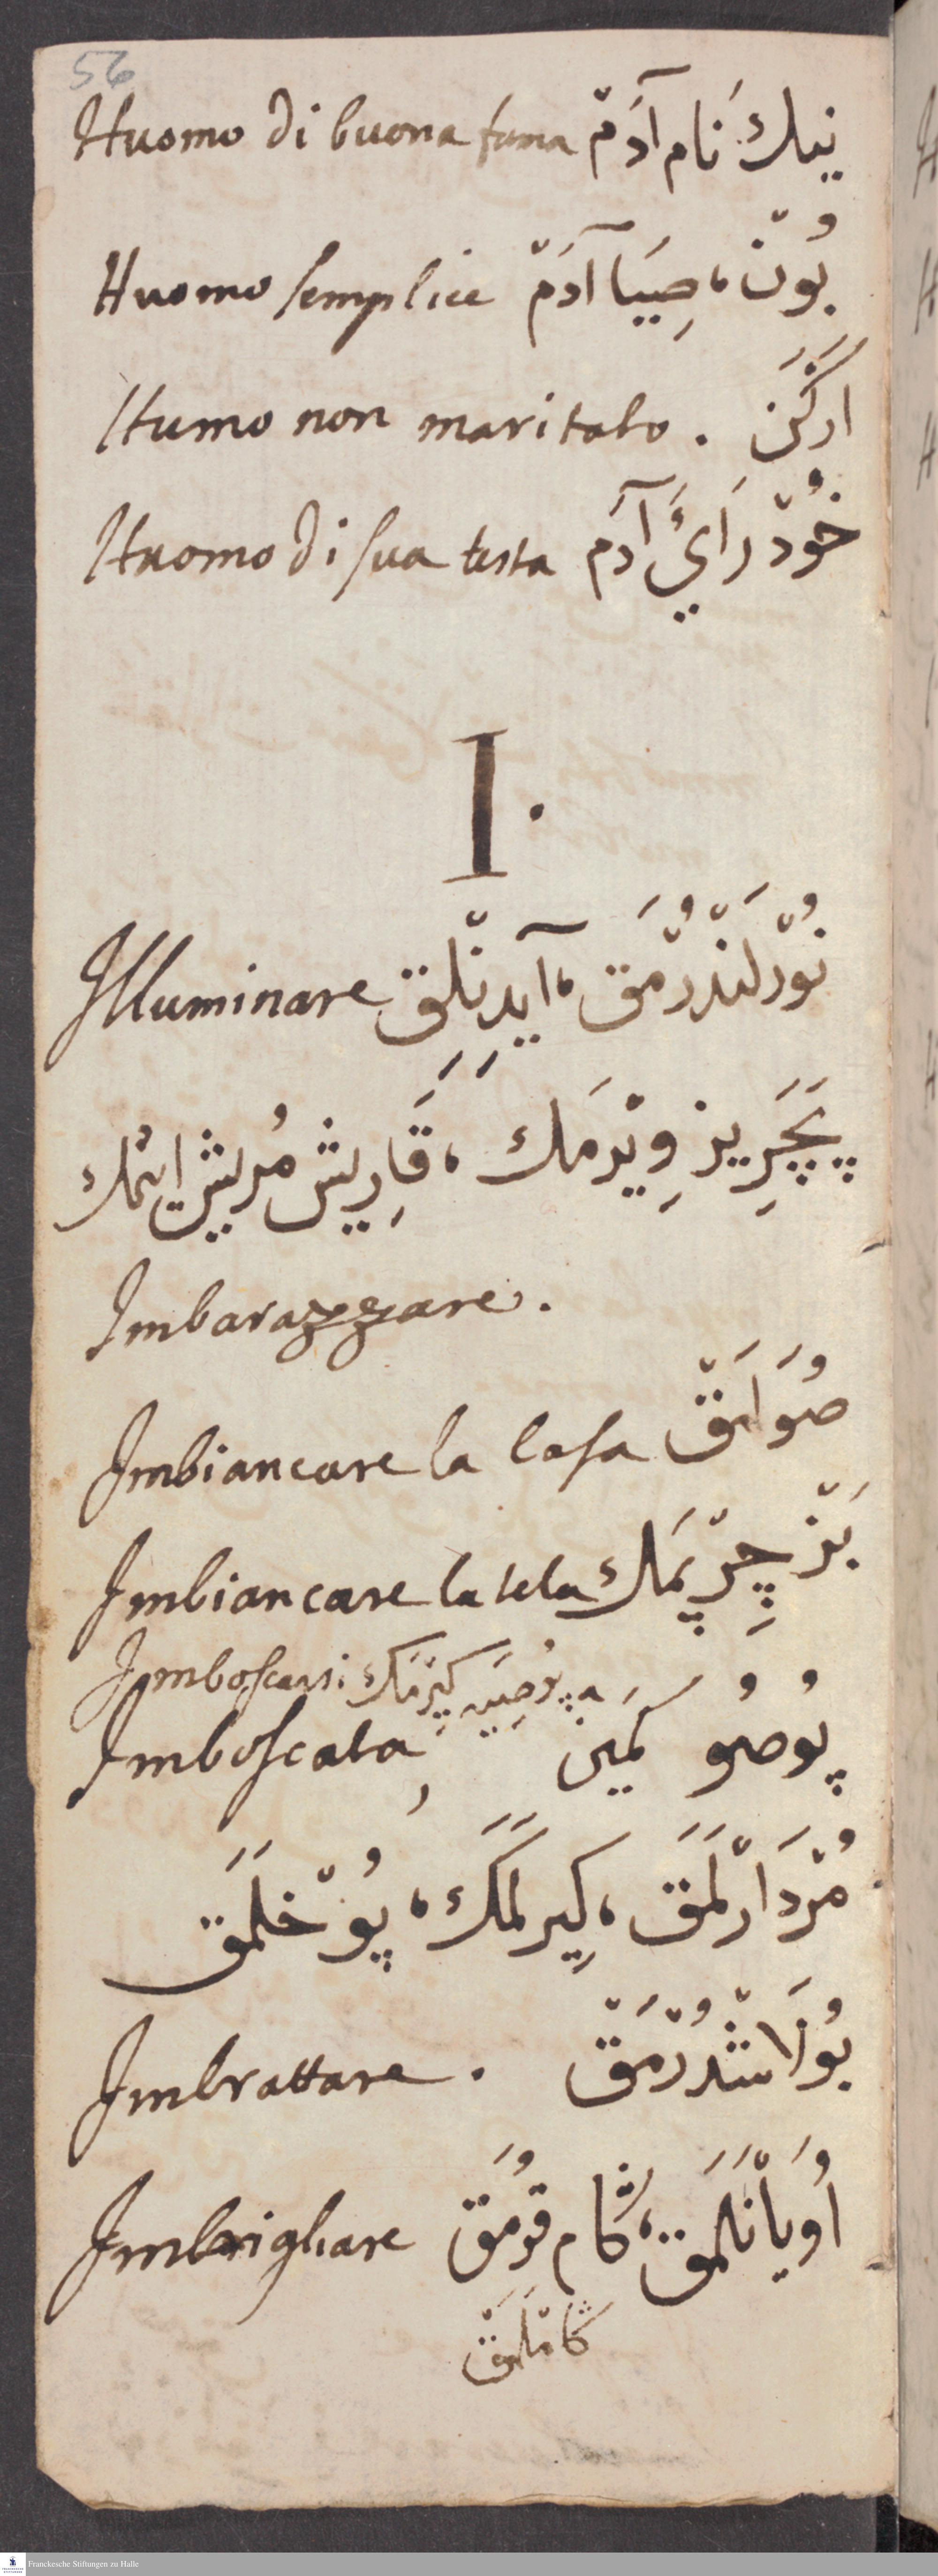 56
Huomo di buona fama نيك نَام آدَمْ
Huomo semplice بُونْ، صِيپَا آدَمْ
Humo non maritato . ارگَن
Huomo di sua testa خُودْ رَايَ آدَم
I.
Illuminare نُورْلَنْدُرْمَق، آيدِنْلِق
پَچَرِيز وِيرْمَك، قَارِيش مُرِيش ايتْمك
Imbarazzare.
Imbiancare la casa صُوَامَقْ
Imbiancare la tela بَزْ چِرْپمَك
Imboscarsi پُوصِيَه گِيرْمَك
Imboscata پُوصُو كَمِين
مُرْدَارْلَمَق، كِيرلَمَك، پُوخْلَمَق
Imbrattare . بُولَاشْدُرْمَقْ
Imbrigliare اُويَانْلَمَق، ڭام قومَق
ڭامْلَمَقْ
Franckesche Stiftungen zu Halle